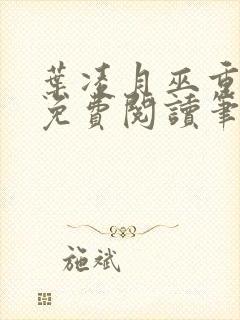 葉凌月巫重
免費閱讀筆
施斌